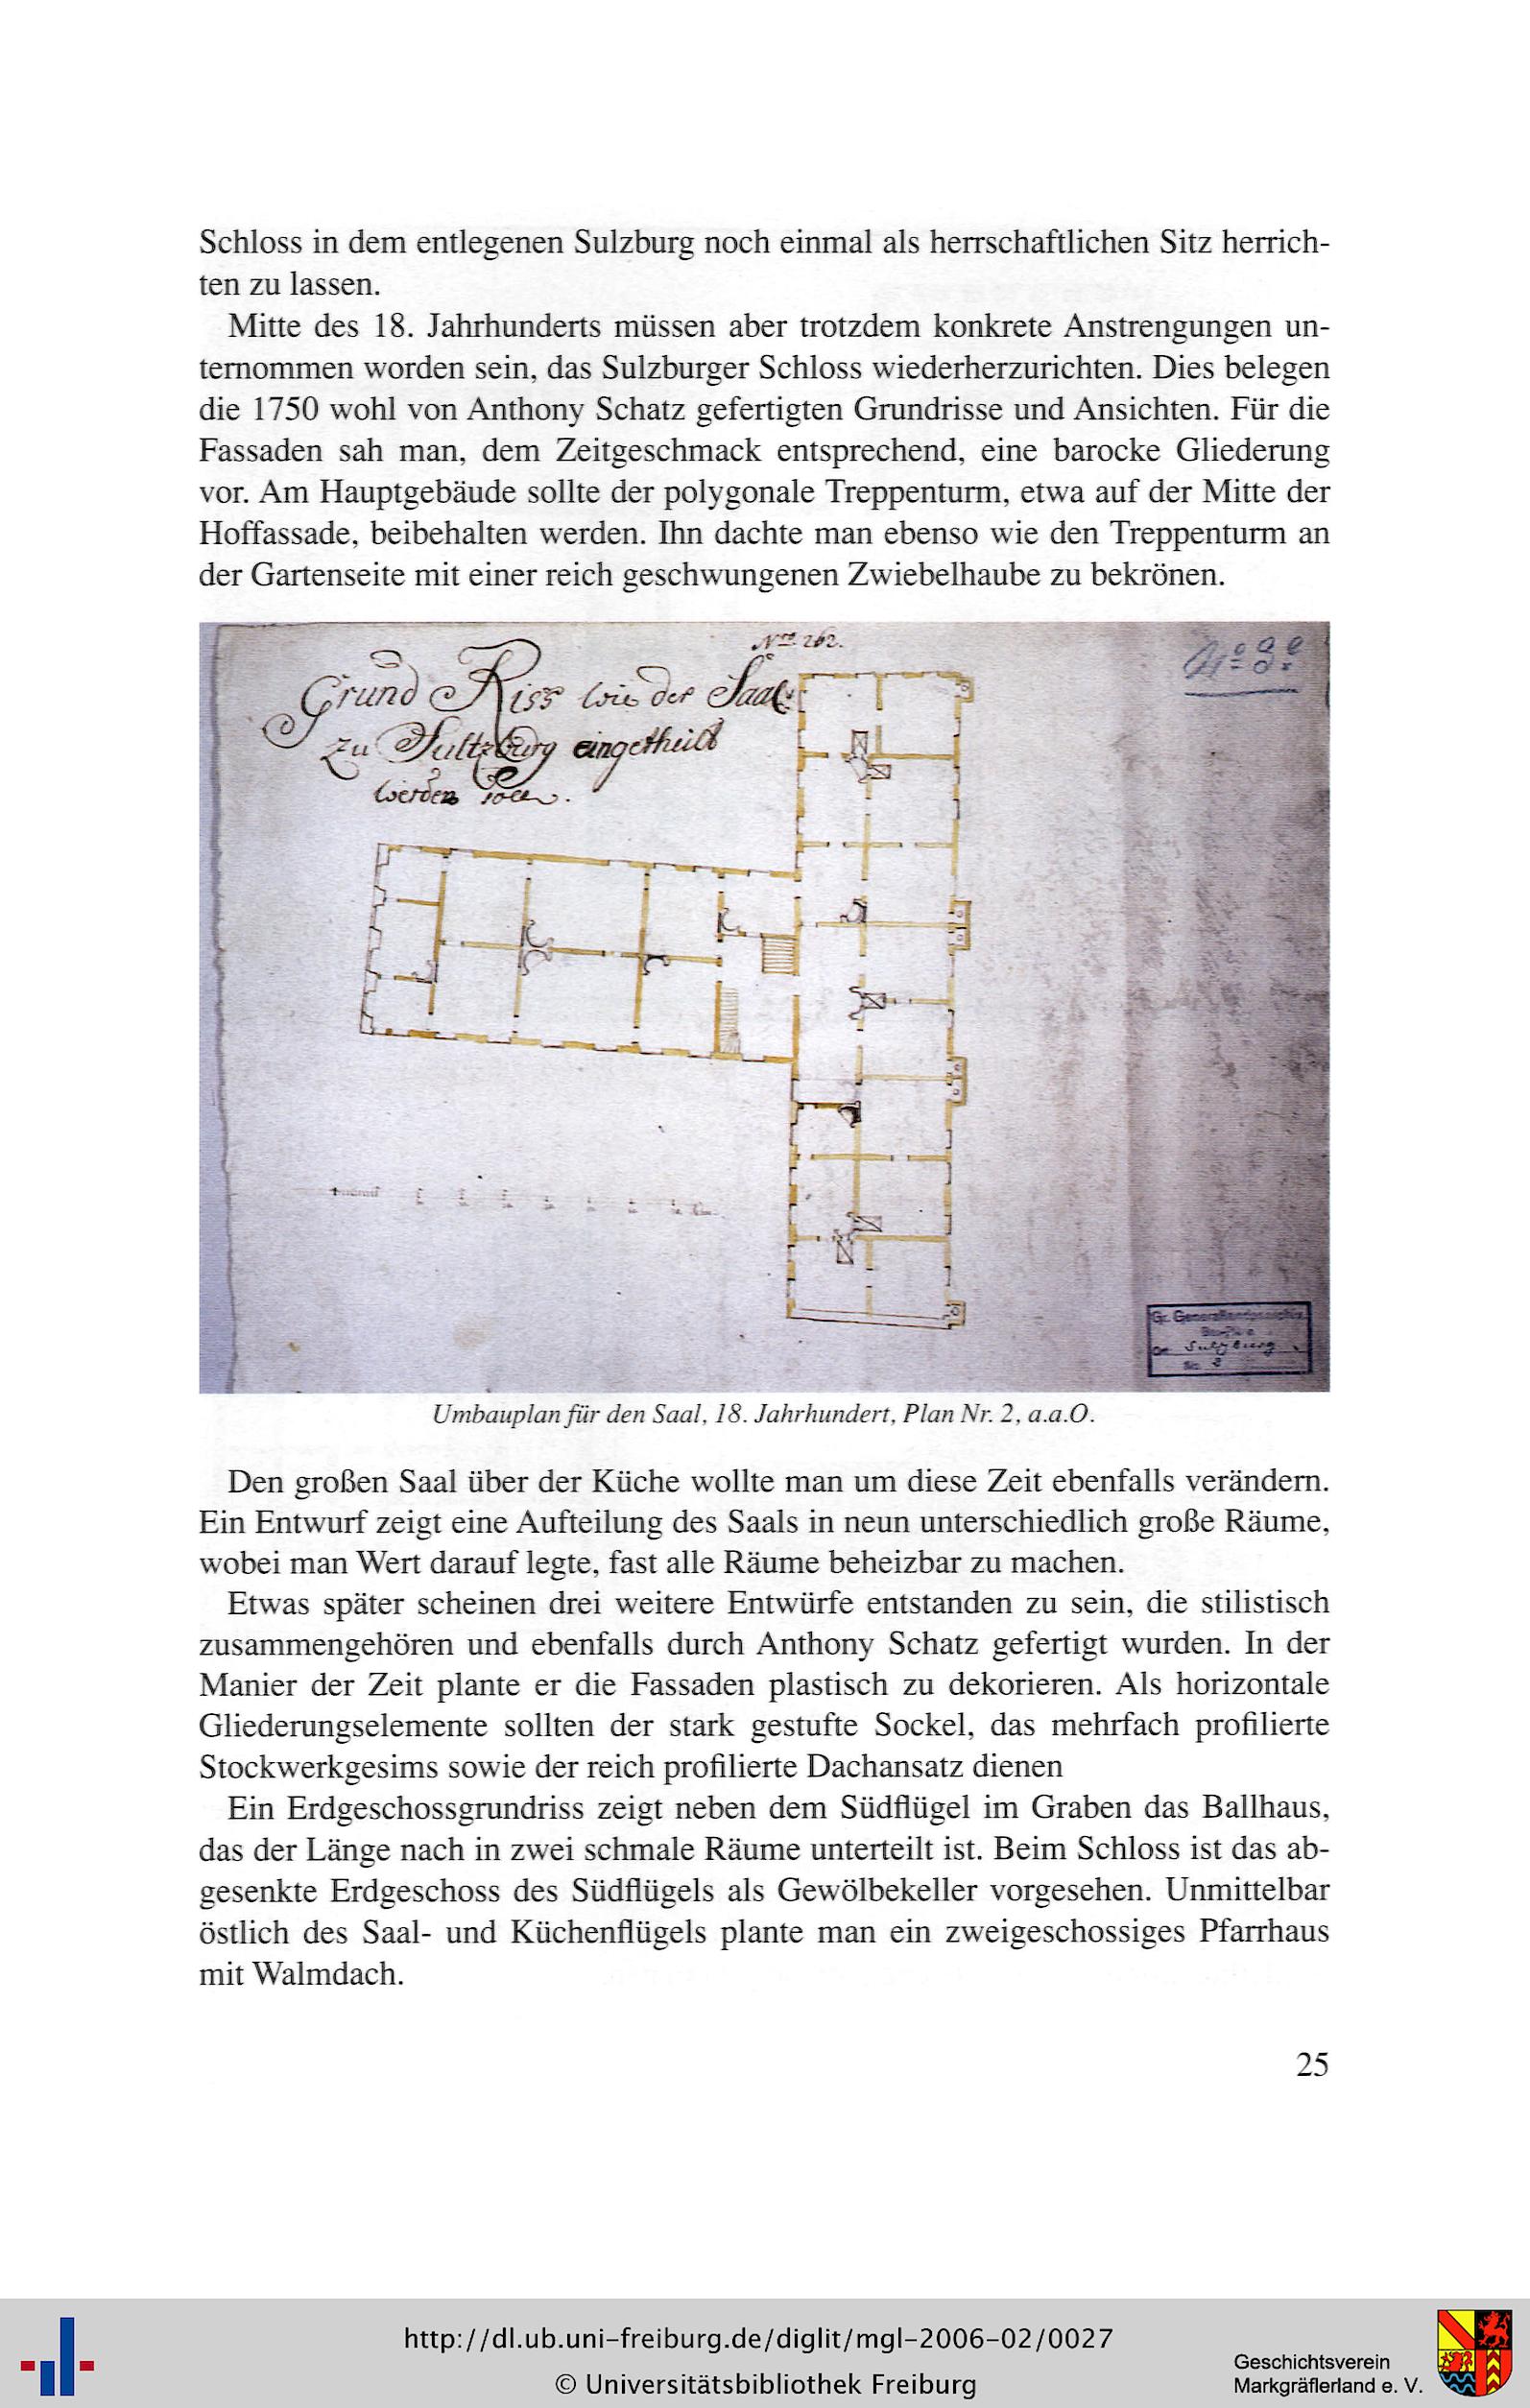 Schloss in dem entlegenen Sulzburg noch einmal als herrschaftlichen Sitz herrich-
ten zu lassen.
Mitte des 18. Jahrhunderts müssen aber trotzdem konkrete Anstrengungen un-
ternommen worden sein, das Sulzburger Schloss wiederherzurichten. Dies belegen
die 1750 wohl von Anthony Schatz gefertigten Grundrisse und Ansichten. Für die
Fassaden sah man, dem Zeitgeschmack entsprechend, eine barocke Gliederung
vor. Am Hauptgebäude sollte der polygonale Treppenturm, etwa auf der Mitte der
Hoffassade, beibehalten werden. Ihn dachte man ebenso wie den Treppenturm an
der Gartenseite mit einer reich geschwungenen Zwiebelhaube zu bekrönen.
Nro 262.
Grund Riss wie der Saal
zu Sultzburg eingetheilt
werden solle.
Sulzburg
Umbauplan für den Saal, 18. Jahrhundert, Plan Nr. 2, a.a.O.
Den großen Saal über der Küche wollte man um diese Zeit ebenfalls verändern.
Ein Entwurf zeigt eine Aufteilung des Saals in neun unterschiedlich große Räume,
wobei man Wert darauf legte, fast alle Räume beheizbar zu machen.
Etwas später scheinen drei weitere Entwürfe entstanden zu sein, die stilistisch
zusammengehören und ebenfalls durch Anthony Schatz gefertigt wurden. In der
Manier der Zeit plante er die Fassaden plastisch zu dekorieren. Als horizontale
Gliederungselemente sollten der stark gestufte Sockel, das mehrfach profilierte
Stockwerkgesims sowie der reich profilierte Dachansatz dienen
Ein Erdgeschossgrundriss zeigt neben dem Südflügel im Graben das Ballhaus,
das der Länge nach in zwei schmale Räume unterteilt ist. Beim Schloss ist das ab-
gesenkte Erdgeschoss des Südflügels als Gewölbekeller vorgesehen. Unmittelbar
östlich des Saal- und Küchenflügels plante man ein zweigeschossiges Pfarrhaus
mit Walmdach.
25
http://dl.ub.uni-freiburg.de/diglit/mgl-2006-02/0027
© Universitätsbibliothek Freiburg
Geschichtsverein
Markgräflerland e. V.